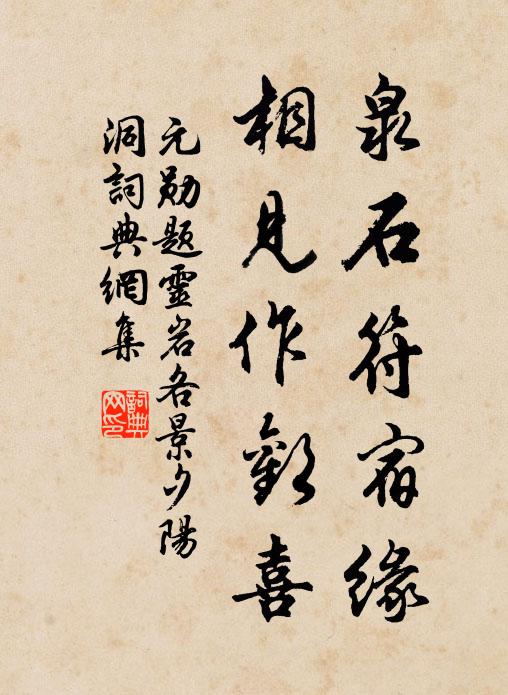 泉石符宿緣
相見作歡喜
元勛題靈岩各景夕陽
洞詞典網集
詞典
网印